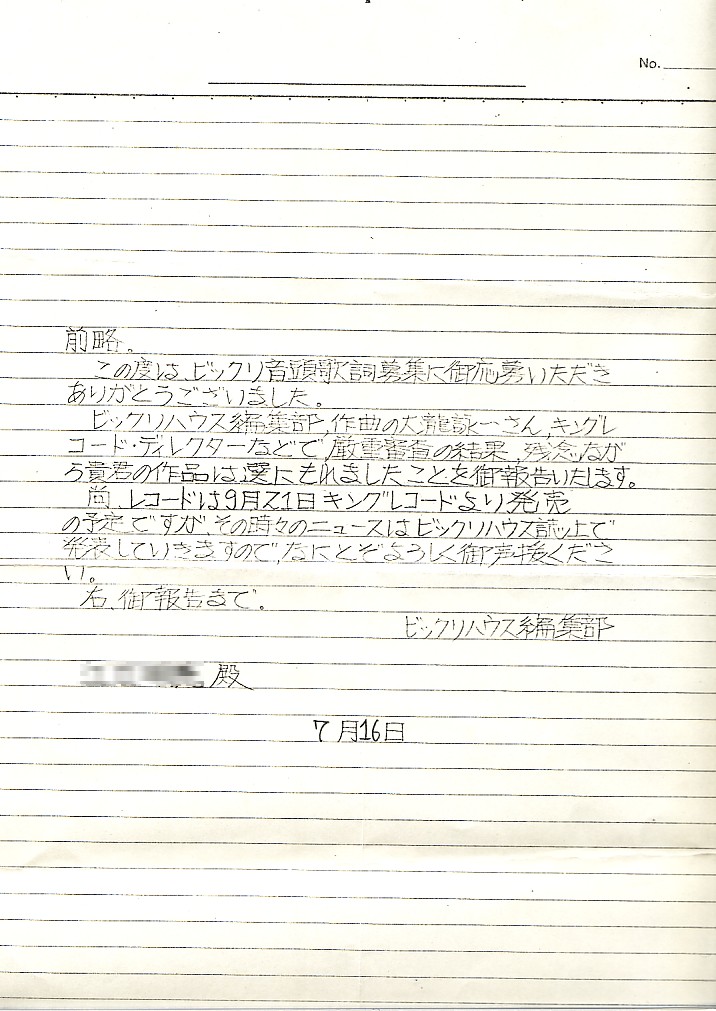 No.
前略。
この度は、ビックリ音頭歌詞募集に御応募いただき
ありがとうございました。
ビックリハウス編集部、作曲の大瀧詠一さん、キングレ
コード・ディレクターなどで、厳重審査の結果、残念なが
ら貴君の作品は選にもれましたことを御報告いたします。
尚、レコードは9月21日キングレコードより発売
の予定ですが、その時々のニュースはビックリハウス誌上で
発表していきますので、なにとぞよろしく御声援くださ
い。
右、御報告まで。
ビックリハウス編集部
殿
7月16日